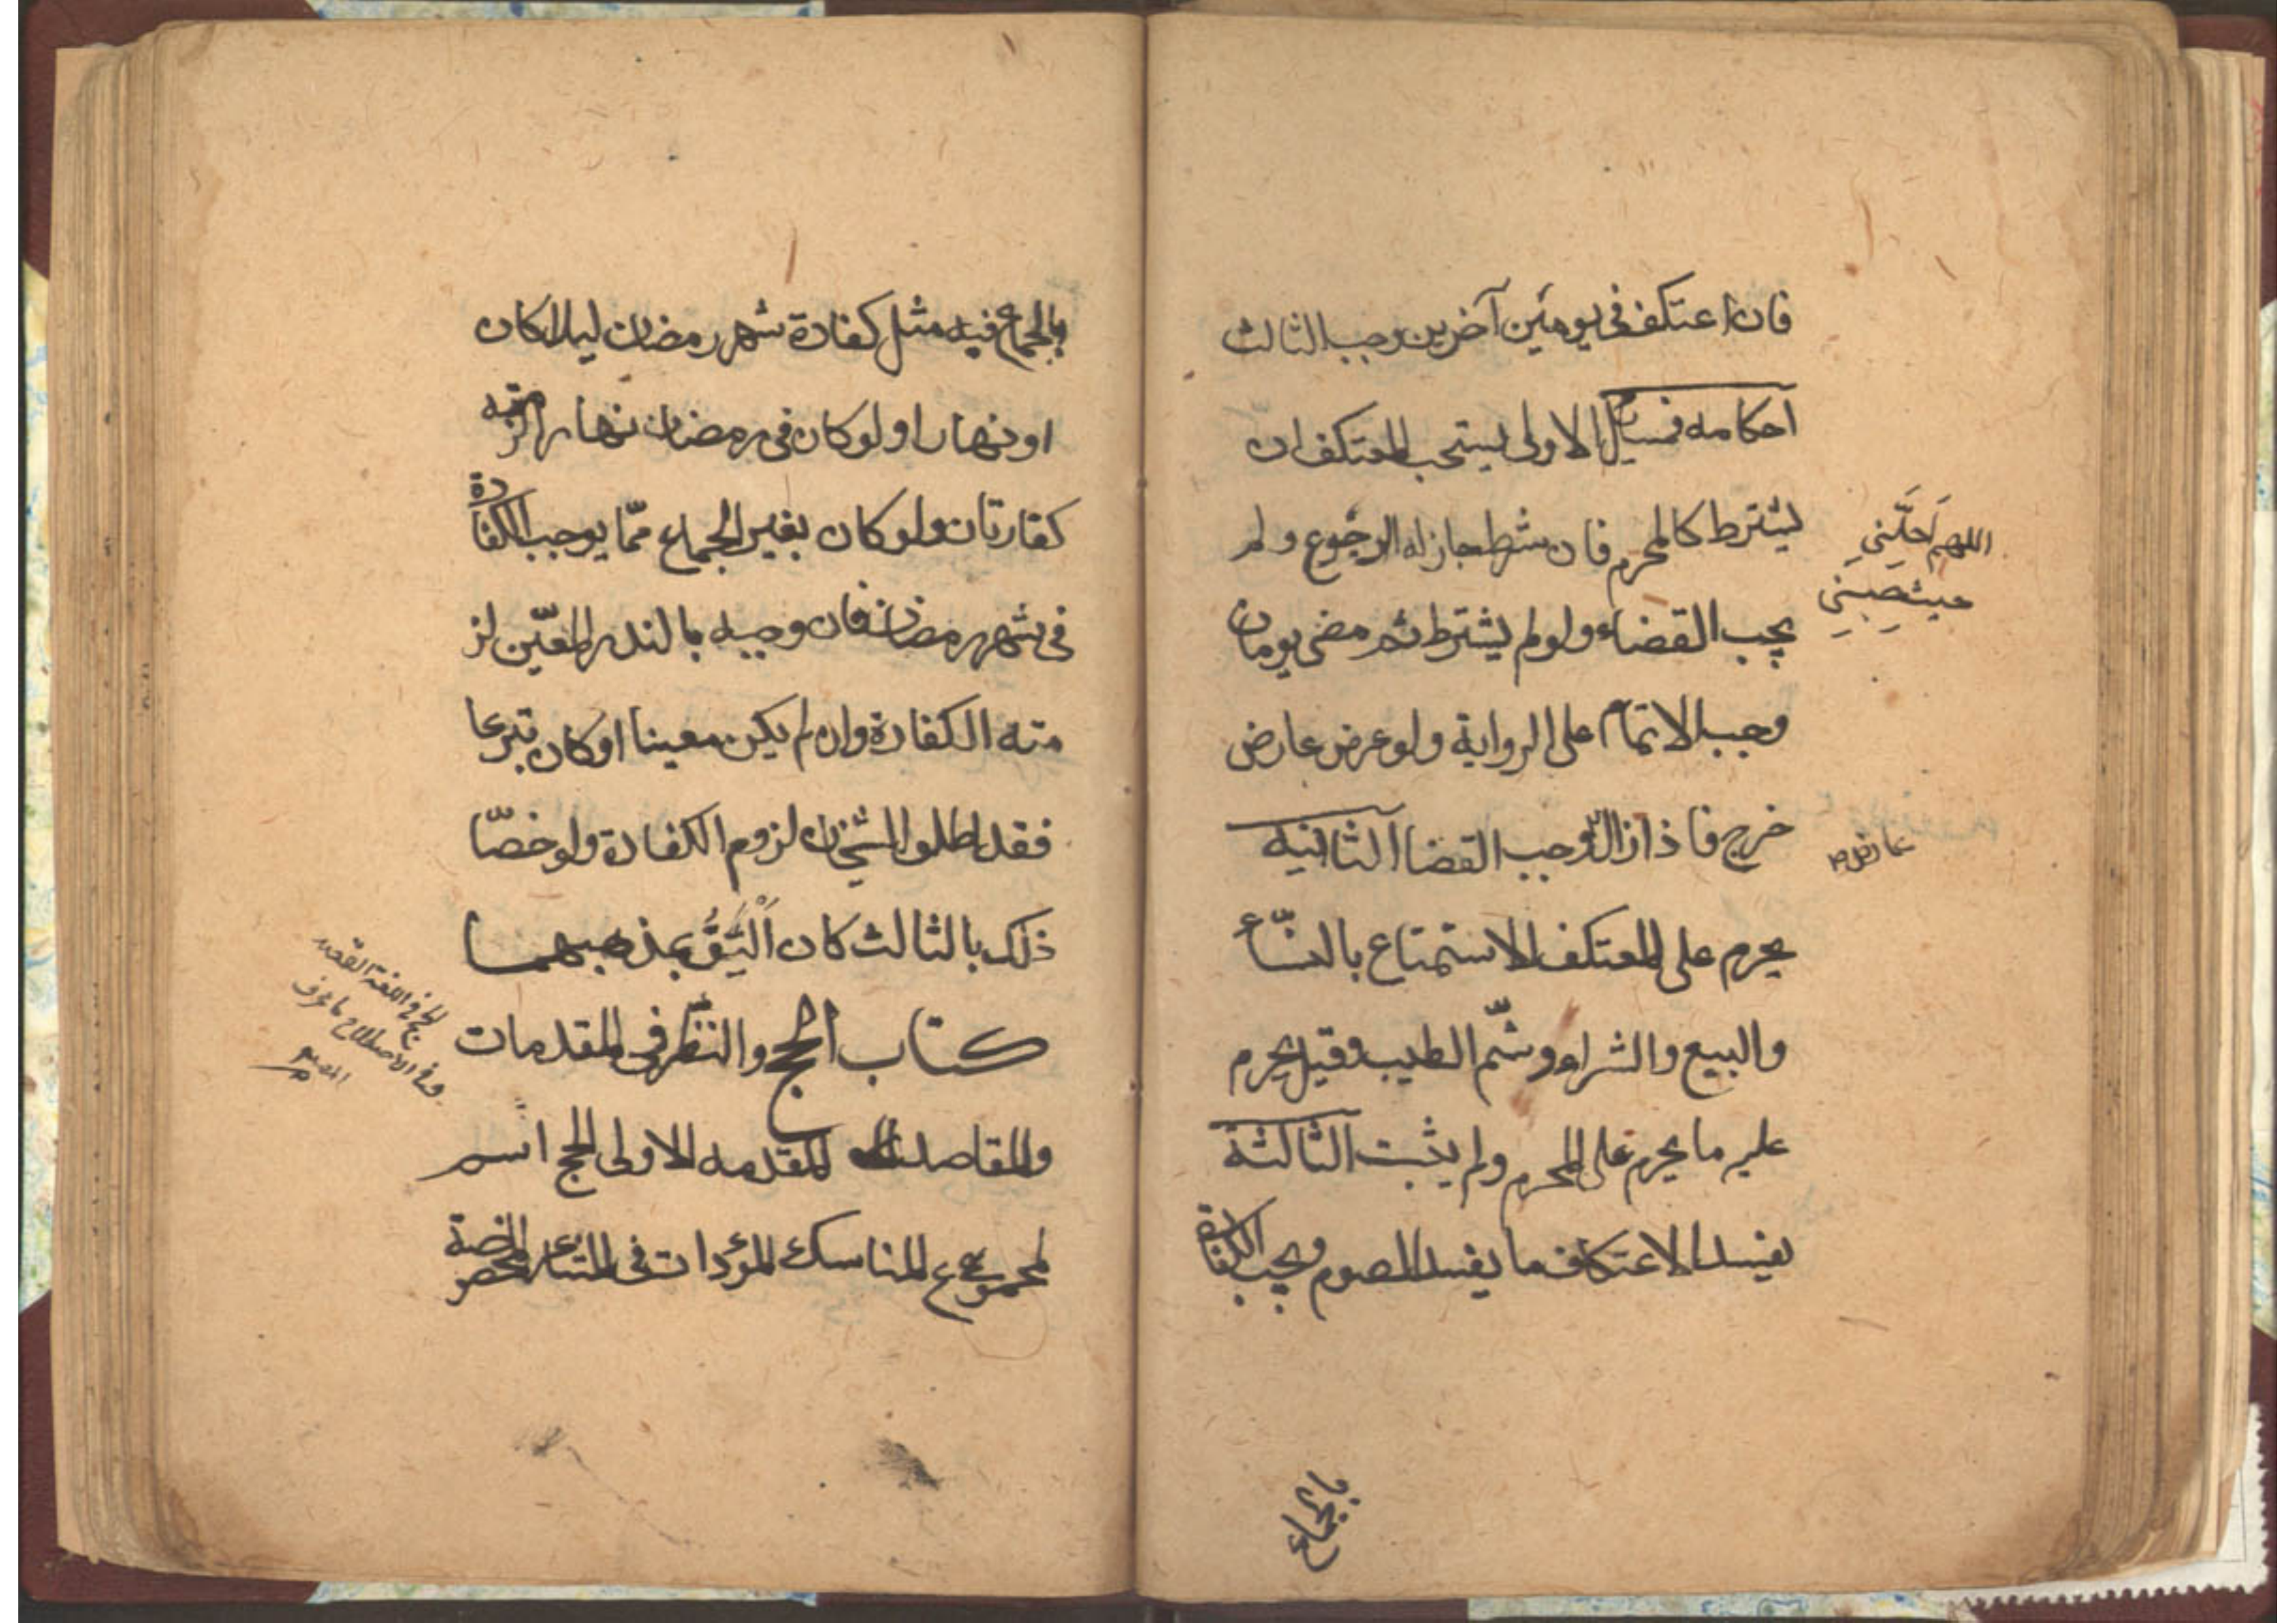 فان اعتكف فى يومين آخرين وجب الثالث
احكامه فمسايل الاولى يستحب للمعتكف ان
يشترط كالمحرم فان شرط جاز له الرجوع ولم
اللهم احلّني
حيث حبستني
يجب القضاء ولو لم يشترط ثم مضى يومان
وجب الاتمام على الرواية ولو عرض عارض
خرج فاذا زال وجب القضا الثانية
عارض
يحرم على المعتكف الاستمتاع بالنسآء
والبيع والشراء وشمّ الطيب وقيل يحرم
عليه ما يحرم على المحرم ولم يثبت الثالثة
يفسد الاعتكاف ما يفسد الصوم ويجب الكفارة
بالجماع
بالجماع فيه مثل كفارة شهر رمضان ليلا كان
او نهارا ولو كان فى رمضان نهارا لزمته
كفارتان ولو كان بغير الجماع ممّا يوجب الكفارة
فى شهر رمضان فان وجبه بالنذر المعيّن لز
مته الكفارة وان لم يكن معينا او كان تبرعا
فقد اطلق الشيخان لزوم الكفارة ولو خصّا
ذلك بالثالث كان اليق بمذهبهما
كتاب الحج والنظر فى المقدمات
الحج فى اللغة القصد
وفى الاصطلاح ما عرف
المص
والمقاصد المقدمه الاولى الحج اسم
لمجموع المناسك المؤدات فى المشاعر المخصوصة